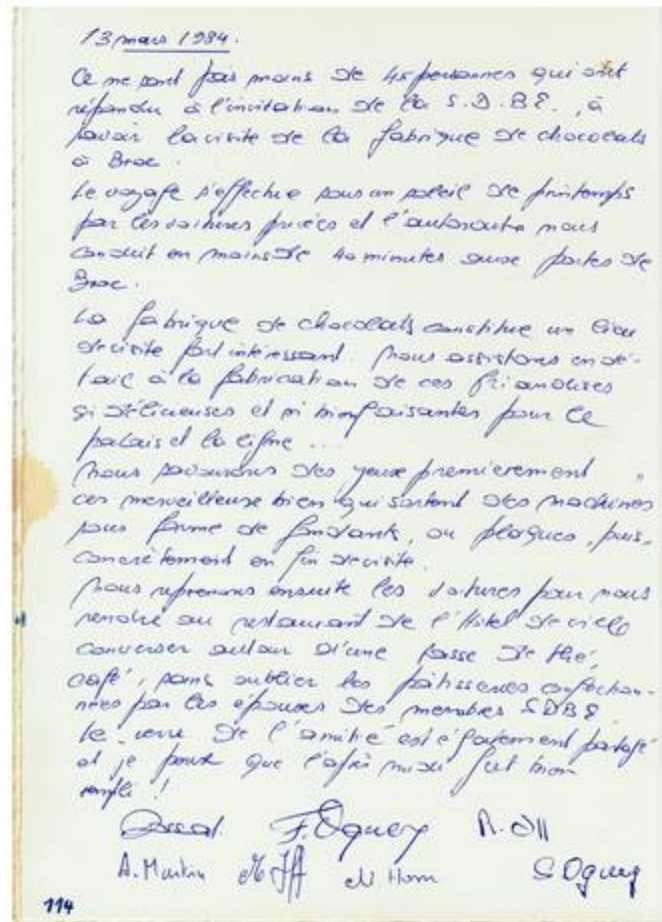 13 mars 1984.
Ce ne sont pas moins de 45 personnes qui ont
répondu à l'invitation de la S.D.B.E., à
savoir la visite de la fabrique de chocolats
à Broc.
Le voyage s'effectue sous un soleil de printemps
par les voitures privées et l'autoroute nous
conduit en moins de 40 minutes aux portes de
Broc.
La fabrique de chocolats constitue un lieu
de visite fort intéressant. Nous assistons en dé-
tail à la fabrication de ces friandises
si délicieuses et si bienfaisantes pour le
palais et la ligne ...
Nous savourons des yeux premièrement
ces merveilleux bien qui sortent des machines
sous forme de fondants, ou plaques, puis,
concrètement en fin de visite.
Nous reprenons ensuite les voitures pour nous
rendre au restaurant de l'Hôtel de ville
converser autour d'une tasse de thé,
café, sans oublier les pâtisseries confection-
nées par les épouses des membres SDBE.
Le verre de l'amitié est également partagé
et je pense que l'après midi fut bien
rempli !
F. Oguey
A. Martin
S Oguey
114